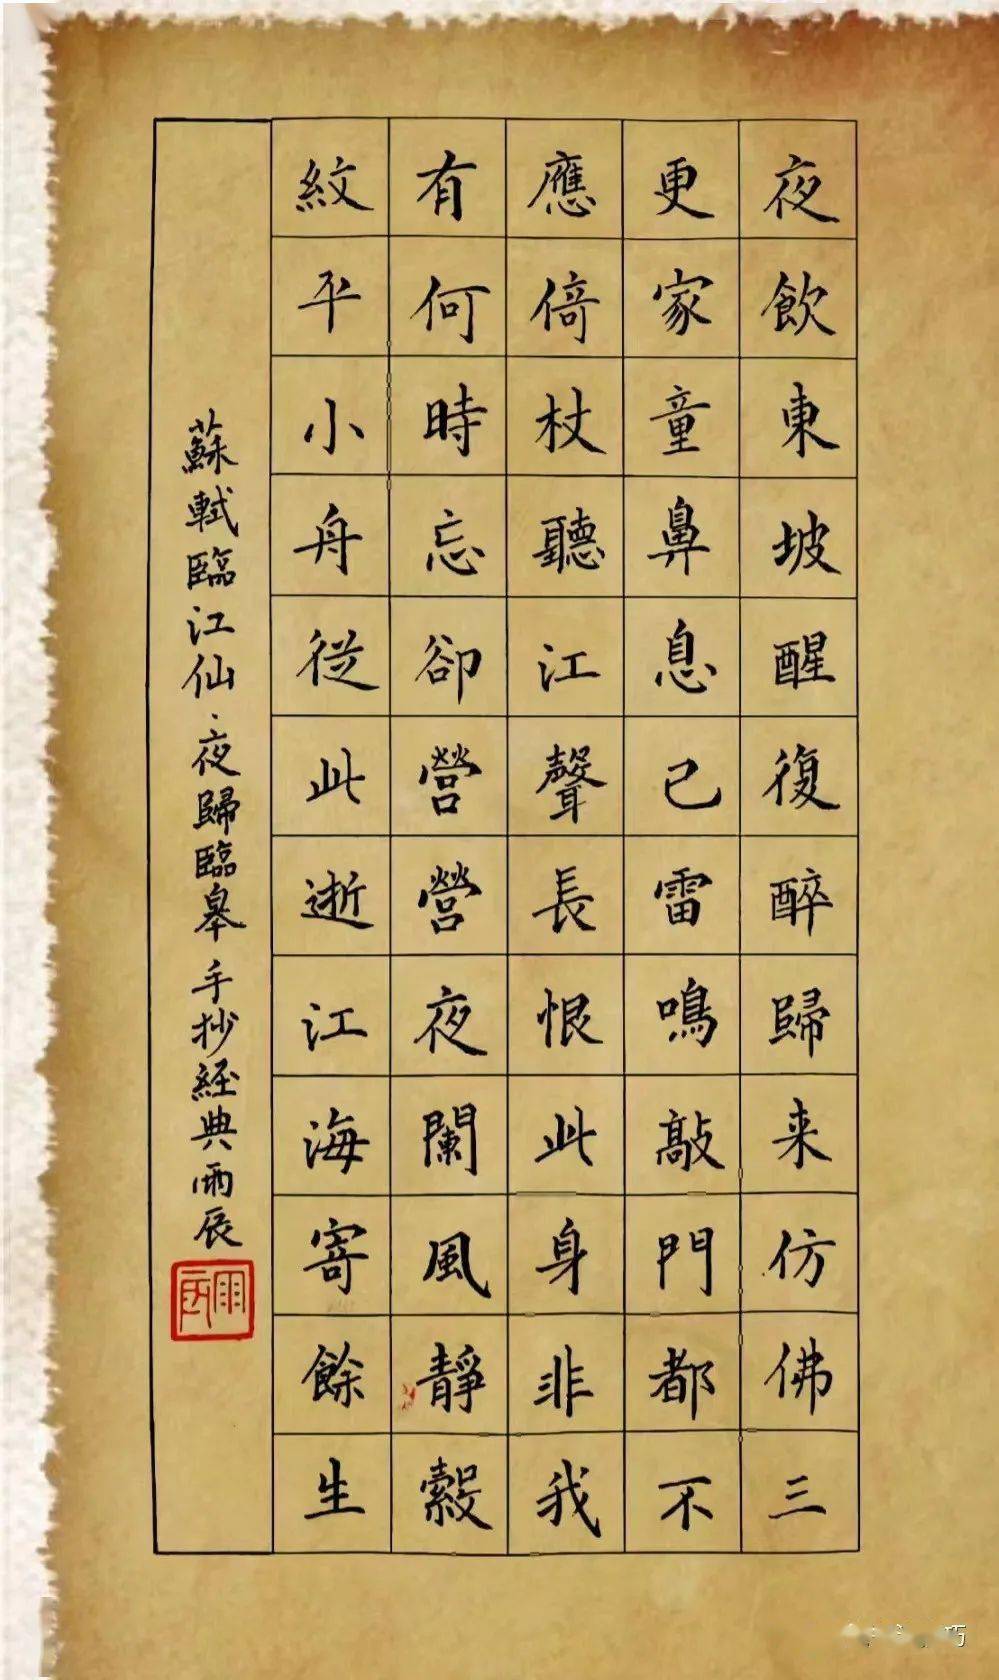 夜飲東坡醒復醉歸来仿佛三
更家童鼻息已雷鳴敲門都不
應倚杖聽江聲長恨此身非我
有何時忘卻營營夜闌風靜縠
紋平小舟從此逝江海寄餘生
蘇軾臨江仙·夜歸臨皋 手抄經典雨辰
雨辰
巧